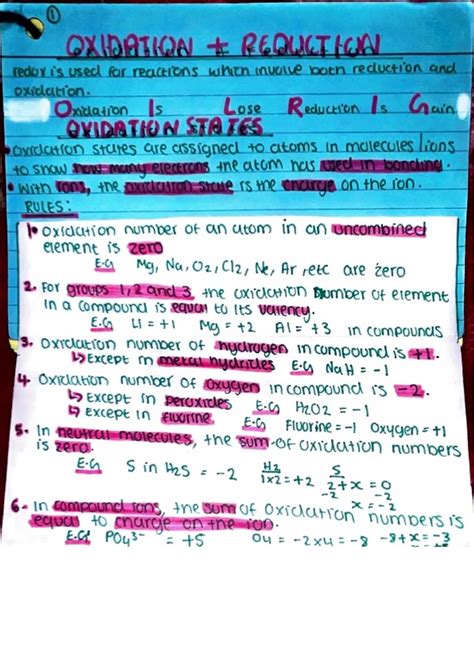 ①
OXIDATION + REDUCTION
redox is used for reactions which involve both reduction and
oxidation.
Oxidation Is Lose Reduction Is Gain
OXIDATION STATES
• oxidation states are assigned to atoms in molecules/ions
to show how many electrons the atom has used in bonding.
• With ions, the oxidation state is the charge on the ion.
RULES:
1• Oxidation number of an atom in an uncombined
element is zero
E.G Mg, Na, O2, Cl2, Ne, Ar, etc are zero
2. For groups 1, 2 and 3, the oxidation number of element
in a compound is equal to its valency.
E.G Li = +1 Mg = +2 Al = +3 in compounds
3. Oxidation number of hydrogen in compound is +1.
↳ Except in metal hydrides E.G NaH = -1
4. Oxidation number of oxygen in compound is -2.
↳ Except in peroxides E.G H2O2 = -1
↳ Except in fluorine E.G Fluorine = -1 Oxygen = +1
5. In neutral molecules, the sum of oxidation numbers
is zero.
E.G S in H2S = -2 H2 1x2 = +2 S 2+x = 0
-2 -2
x = -2
6. In compound ions, the sum of oxidation numbers is
equal to charge on the ion.
E.G PO4 3- = +5 O4 = -2x4 = -8 -8+x = -3